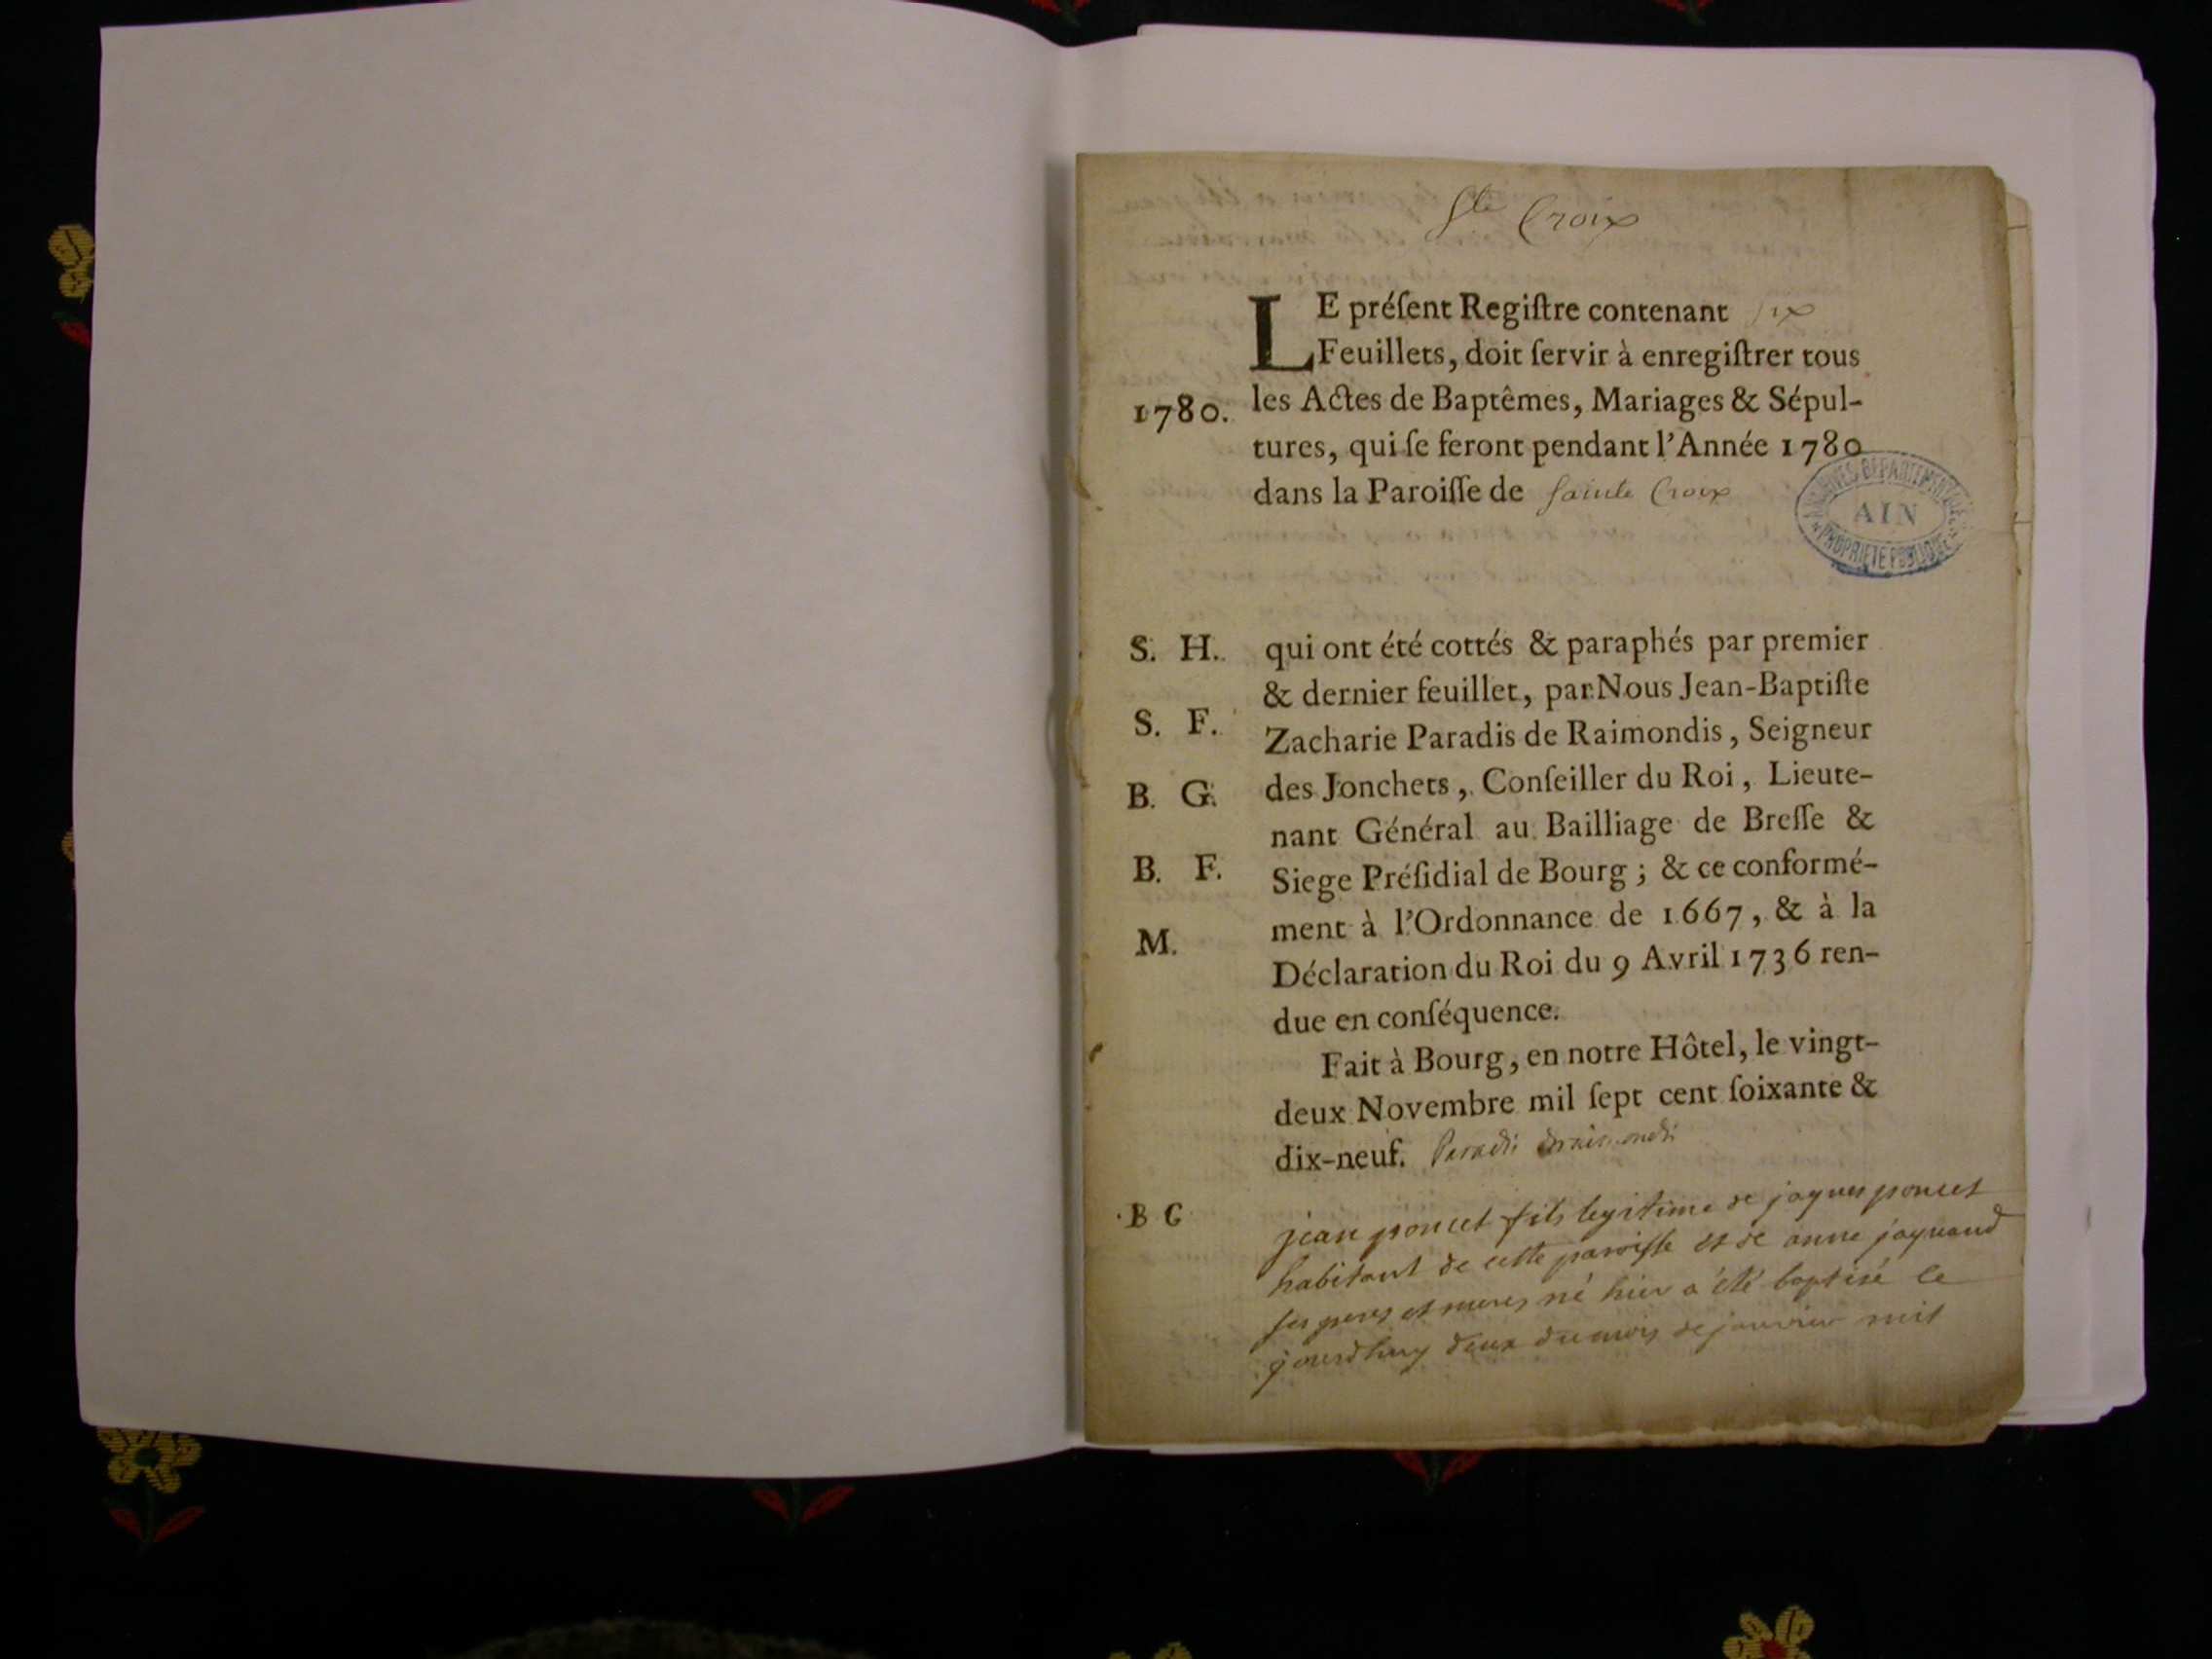 Ste Croix
LE préſent Regiſtre contenant six
Feuillets, doit ſervir à enregiſtrer tous
1780. les Actes de Baptêmes, Mariages & Sépul-
tures, qui ſe feront pendant l'Année 1780
dans la Paroiſſe de Sainte Croix
ARCHIVES DEPARTEMENTALES
AIN
PROPRIETE PUBLIQUE
S. H. qui ont été cottés & paraphés par premier
& dernier feuillet, par Nous Jean-Baptiſte
S. F. Zacharie Paradis de Raimondis, Seigneur
B. G. des Jonchets, Conſeiller du Roi, Lieute-
nant Général au Bailliage de Breſſe &
B. F. Siege Préſidial de Bourg ; & ce conformé-
ment à l'Ordonnance de 1667, & à la
M. Déclaration du Roi du 9 Avril 1736 ren-
due en conſéquence.
Fait à Bourg, en notre Hôtel, le vingt-
deux Novembre mil ſept cent ſoixante &
dix-neuf. Paradis deraimondis
B G jean poncet fils legitime de jaques poncet
habitant de cette paroisse et de anne jaquand
ses peres et meres né hier a été baptisé ce
jourdhuy deux du mois de janvier mil